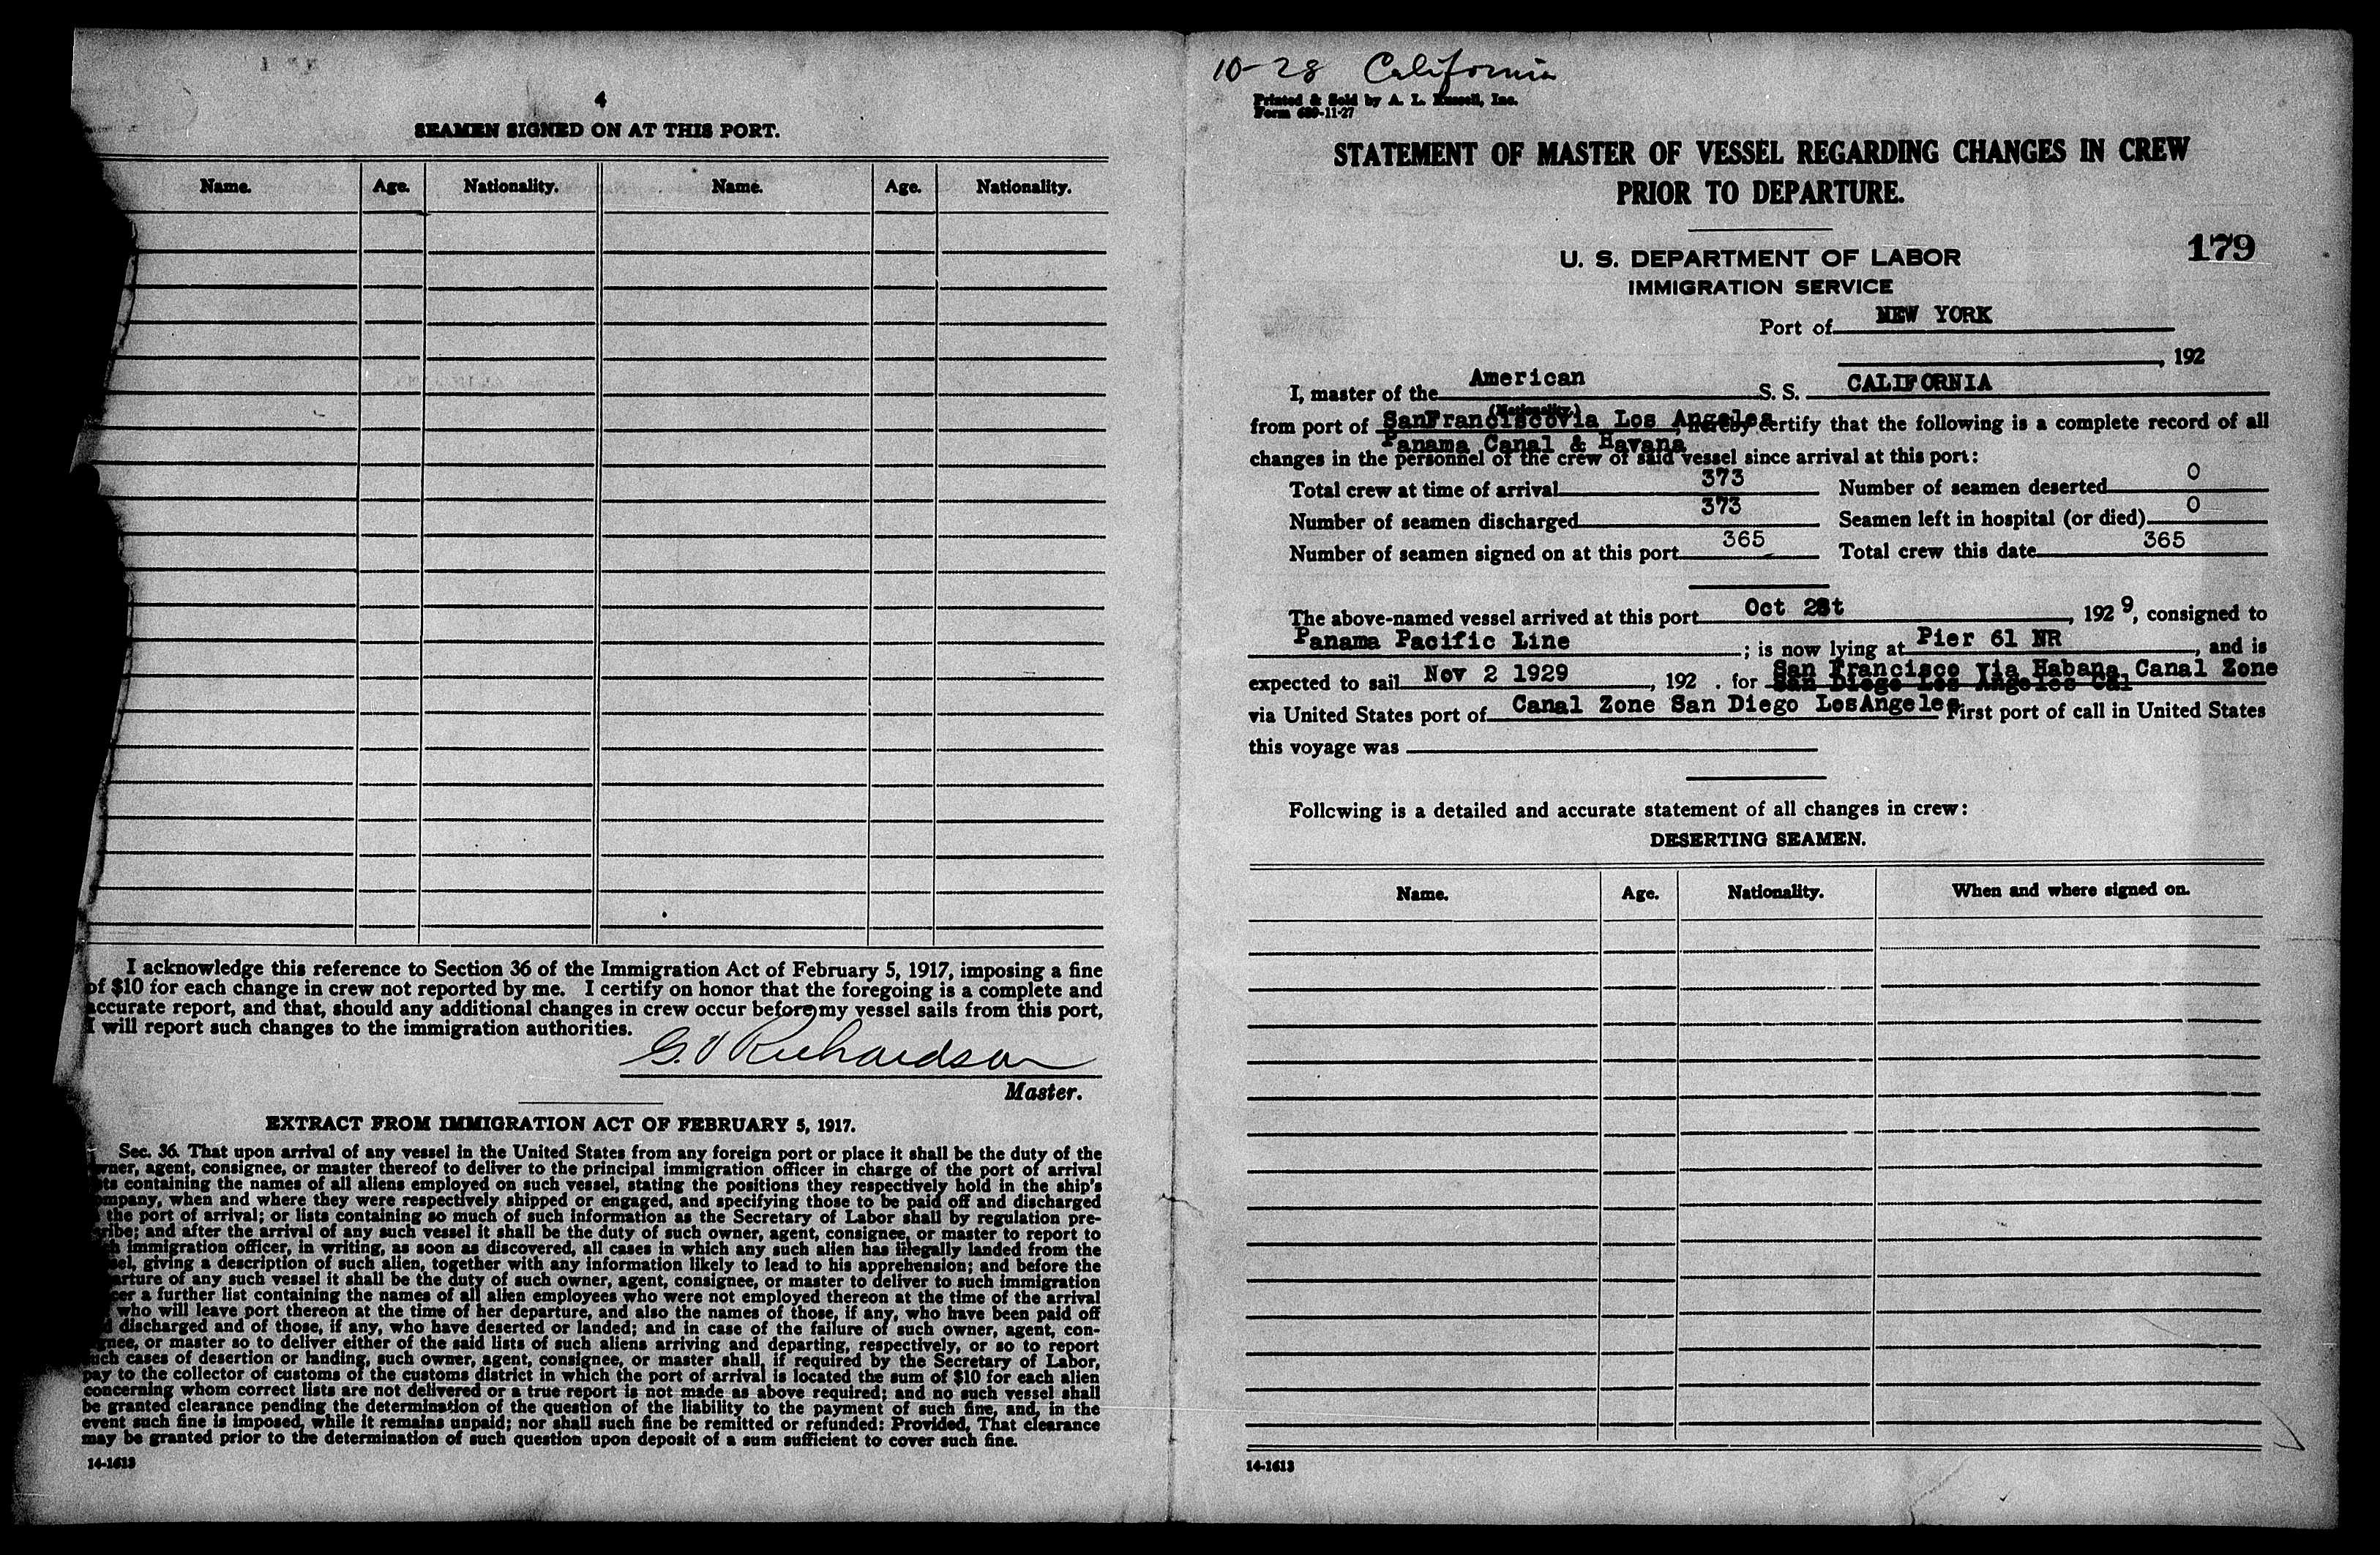 4
SEAMEN SIGNED ON AT THIS PORT.
Name. Age. Nationality. Name. Age. Nationality.
I acknowledge this reference to Section 36 of the Immigration Act of February 5, 1917, imposing a fine
of $10 for each change in crew not reported by me. I certify on honor that the foregoing is a complete and
accurate report, and that, should any additional changes in crew occur before my vessel sails from this port,
I will report such changes to the immigration authorities.
Richardson
Master.
EXTRACT FROM IMMIGRATION ACT OF FEBRUARY 5, 1917.
Sec. 36. That upon arrival of any vessel in the United States from any foreign port or place it shall be the duty of the
wner, agent, consignee, or master thereof to deliver to the principal immigration officer in charge of the port of arrival
ts containing the names of all aliens employed on such vessel, stating the positions they respectively hold in the ship's
ompany, when and where they were respectively shipped or engaged, and specifying those to be paid off and discharged
the port of arrival; or lists containing so much of such information as the Secretary of Labor shall by regulation pre-
ribe; and after the arrival of any such vessel it shall be the duty of such owner, agent, consignee, or master to report to
h immigration officer, in writing, as soon as discovered, all cases in which any such alien has illegally landed from the
sel, giving a description of such alien, together with any information likely to lead to his apprehension; and before the
arture of any such vessel it shall be the duty of such owner, agent, consignee, or master to deliver to such immigration
cer a further list containing the names of all alien employees who were not employed thereon at the time of the arrival
who will leave port thereon at the time of her departure, and also the names of those, if any, who have been paid off
d discharged and of those, if any, who have deserted or landed; and in case of the failure of such owner, agent, con-
gnee, or master so to deliver either of the said lists of such aliens arriving and departing, respectively, or so to report
uch cases of desertion or landing, such owner, agent, consignee, or master shall, if required by the Secretary of Labor,
pay to the collector of customs of the customs district in which the port of arrival is located the sum of $10 for each alien
concerning whom correct lists are not delivered or a true report is not made as above required; and no such vessel shall
be granted clearance pending the determination of the question of the liability to the payment of such fine, and, in the
event such fine is imposed, while it remains unpaid; nor shall such fine be remitted or refunded: Provided, That clearance
may be granted prior to the determination of such question upon deposit of a sum sufficient to cover such fine.
14-1613
10-28 California
Printed & Sold by A. L. Russell, Inc.
Form 689-11-27
STATEMENT OF MASTER OF VESSEL REGARDING CHANGES IN CREW
PRIOR TO DEPARTURE.
179
U. S. DEPARTMENT OF LABOR
IMMIGRATION SERVICE
Port of NEW YORK
, 192
I, master of the American S. S. CALIFORNIA
(Nationality)
from port of SanFranciscovia Los Angeles, hereby certify that the following is a complete record of all
Panama Canal & Havana
changes in the personnel of the crew of said vessel since arrival at this port:
Total crew at time of arrival 373 Number of seamen deserted 0
Number of seamen discharged 373 Seamen left in hospital (or died) 0
Number of seamen signed on at this port 365 Total crew this date 365
The above-named vessel arrived at this port Oct , 1929, consigned to
Panama Pacific Line ; is now lying at Pier 61 NR, and is
expected to sail Nov 2 1929, 192 . for San Francisco via Habana Canal Zone
San Diego Los Angeles Cal
via United States port of Canal Zone San Diego LosAngeles First port of call in United States
this voyage was
Following is a detailed and accurate statement of all changes in crew:
DESERTING SEAMEN.
Name. Age. Nationality. When and where signed on.
14-1613